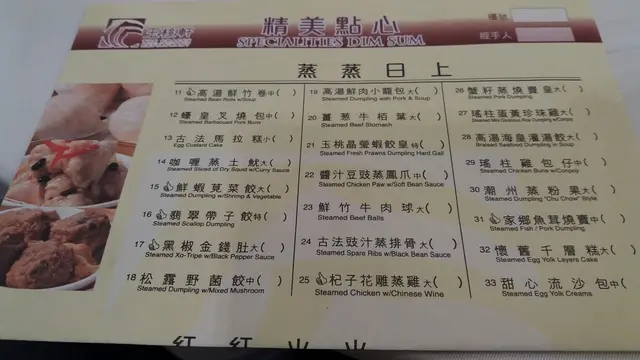 精美點心
SPECIALITIES DIM SUM
檯號
經手人
蒸蒸日上
11 高湯鮮竹卷中( )
Steamed Bean Rolls w/Soup
12 蠔皇叉燒包中( )
Steamed Barbecued Pork Buns
13 古法馬拉糕小( )
Egg Custard Cake
14 咖喱蒸土魷大( )
Steamed Sliced of Dry Squid w/Curry Sauce
15 鮮蝦莧菜餃大( )
Steamed Dumpling w/Shrimp & Vegetable
16 翡翠帶子餃特( )
Steamed Scallop Dumpling
17 黑椒金錢肚大( )
Steamed Xo-Tripe w/Black Pepper Sauce
18 松露野菌餃中( )
Steamed Dumpling w/Mixed Mushroom
19 高湯鮮肉小籠包大( )
Steamed Dumpling with Pork & Soup
20 薑葱牛栢葉大( )
Steamed Beef Stomach
21 玉桃晶瑩蝦餃皇特( )
Steamed Fresh Prawns Dumpling Hard Gail
22 醬汁豆豉蒸鳳爪中( )
Steamed Chicken Paw w/Soft Bean Sauce
23 鮮竹牛肉球大( )
Steamed Beef Balls
24 古法豉汁蒸排骨大( )
Steamed Spare Ribs w/Black Bean Sauce
25 杞子花雕蒸雞大( )
Steamed Chicken w/Chinese Wine
26 蟹籽蒸燒賣皇大( )
Steamed Pork Dumpling
27 瑤柱蛋黃珍珠雞大( )
28 高湯海皇灌湯餃大( )
Braised Seafood Dumpling in Soup
29 瑤柱雞包仔中( )
Steamed Chicken Buns w/Conpoy
30 潮州蒸粉果大( )
Steamed Dumpling "Chu Chow" Style
31 家鄉魚茸燒賣中( )
Steamed Fish / Pork Dumpling
32 懷舊千層糕大( )
Steamed Egg Yolk Layers Cake
33 甜心流沙包中( )
Steamed Egg Yolk Creams